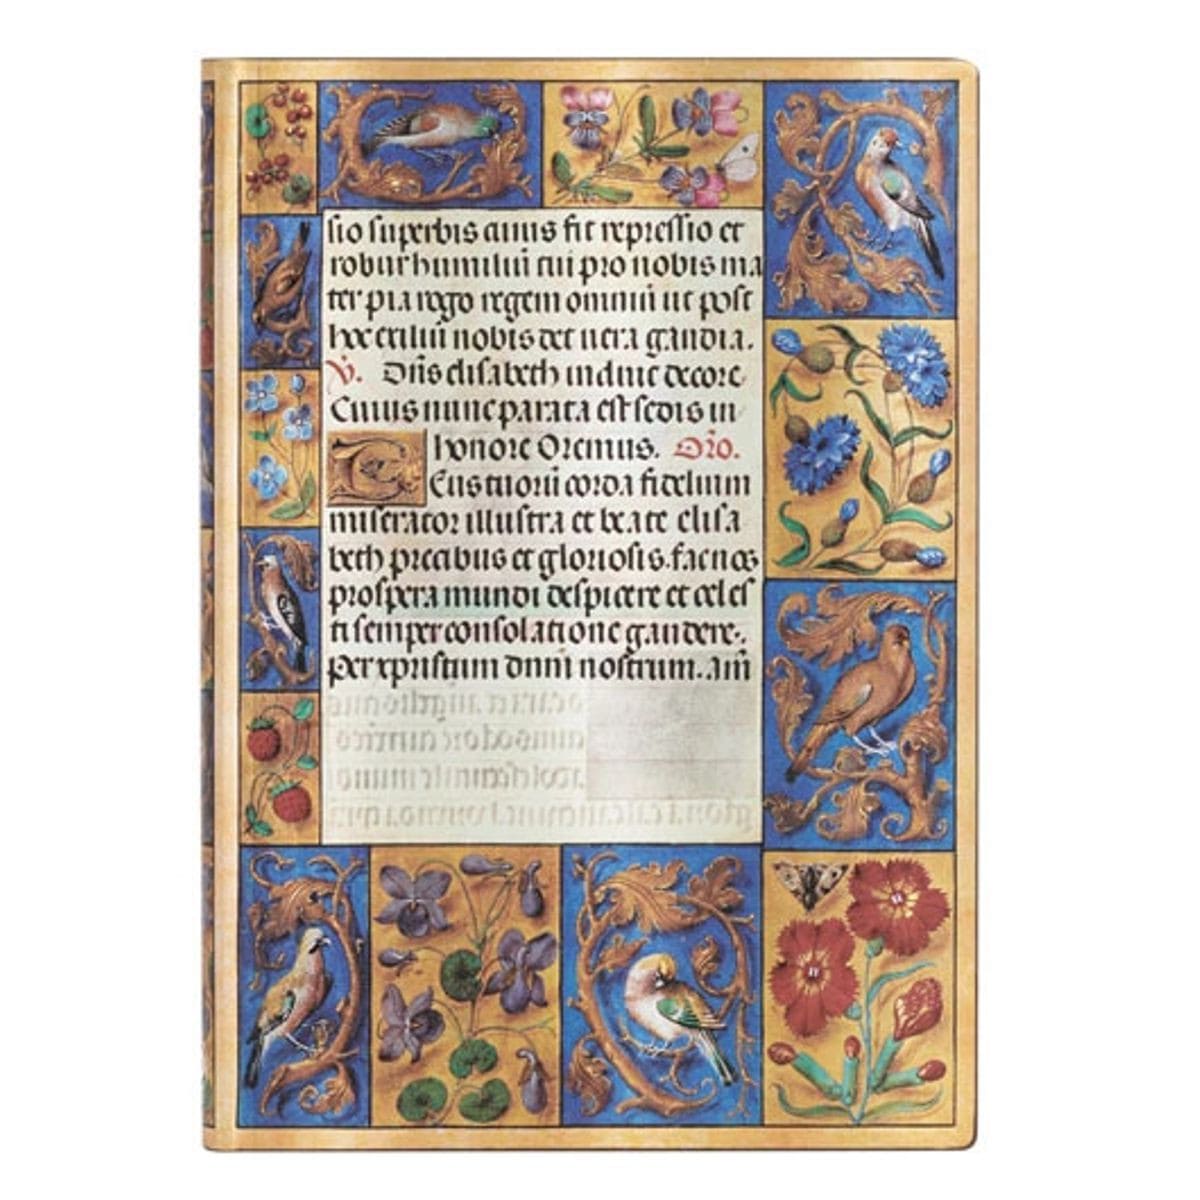 sio superbis cuius fit repressio et
robur humiliũ tui pro nobis ma
ter pia rogo regem omniũ ut post
hoc exiliũ nobis det uera gaudia.
V̉. Dñs elisabeth induic decore
Cuius nunc parata est sedis in
honore Oremus. Oro̅.
Deus tuorũ corda fidelium
miserator illustra et beate elisa
beth precibus et gloriosis. fac nos
prospera mundi despicere et celes
ti semper consolatione gaudere.
Per xpristum dnm̅ nostrum. Am̅